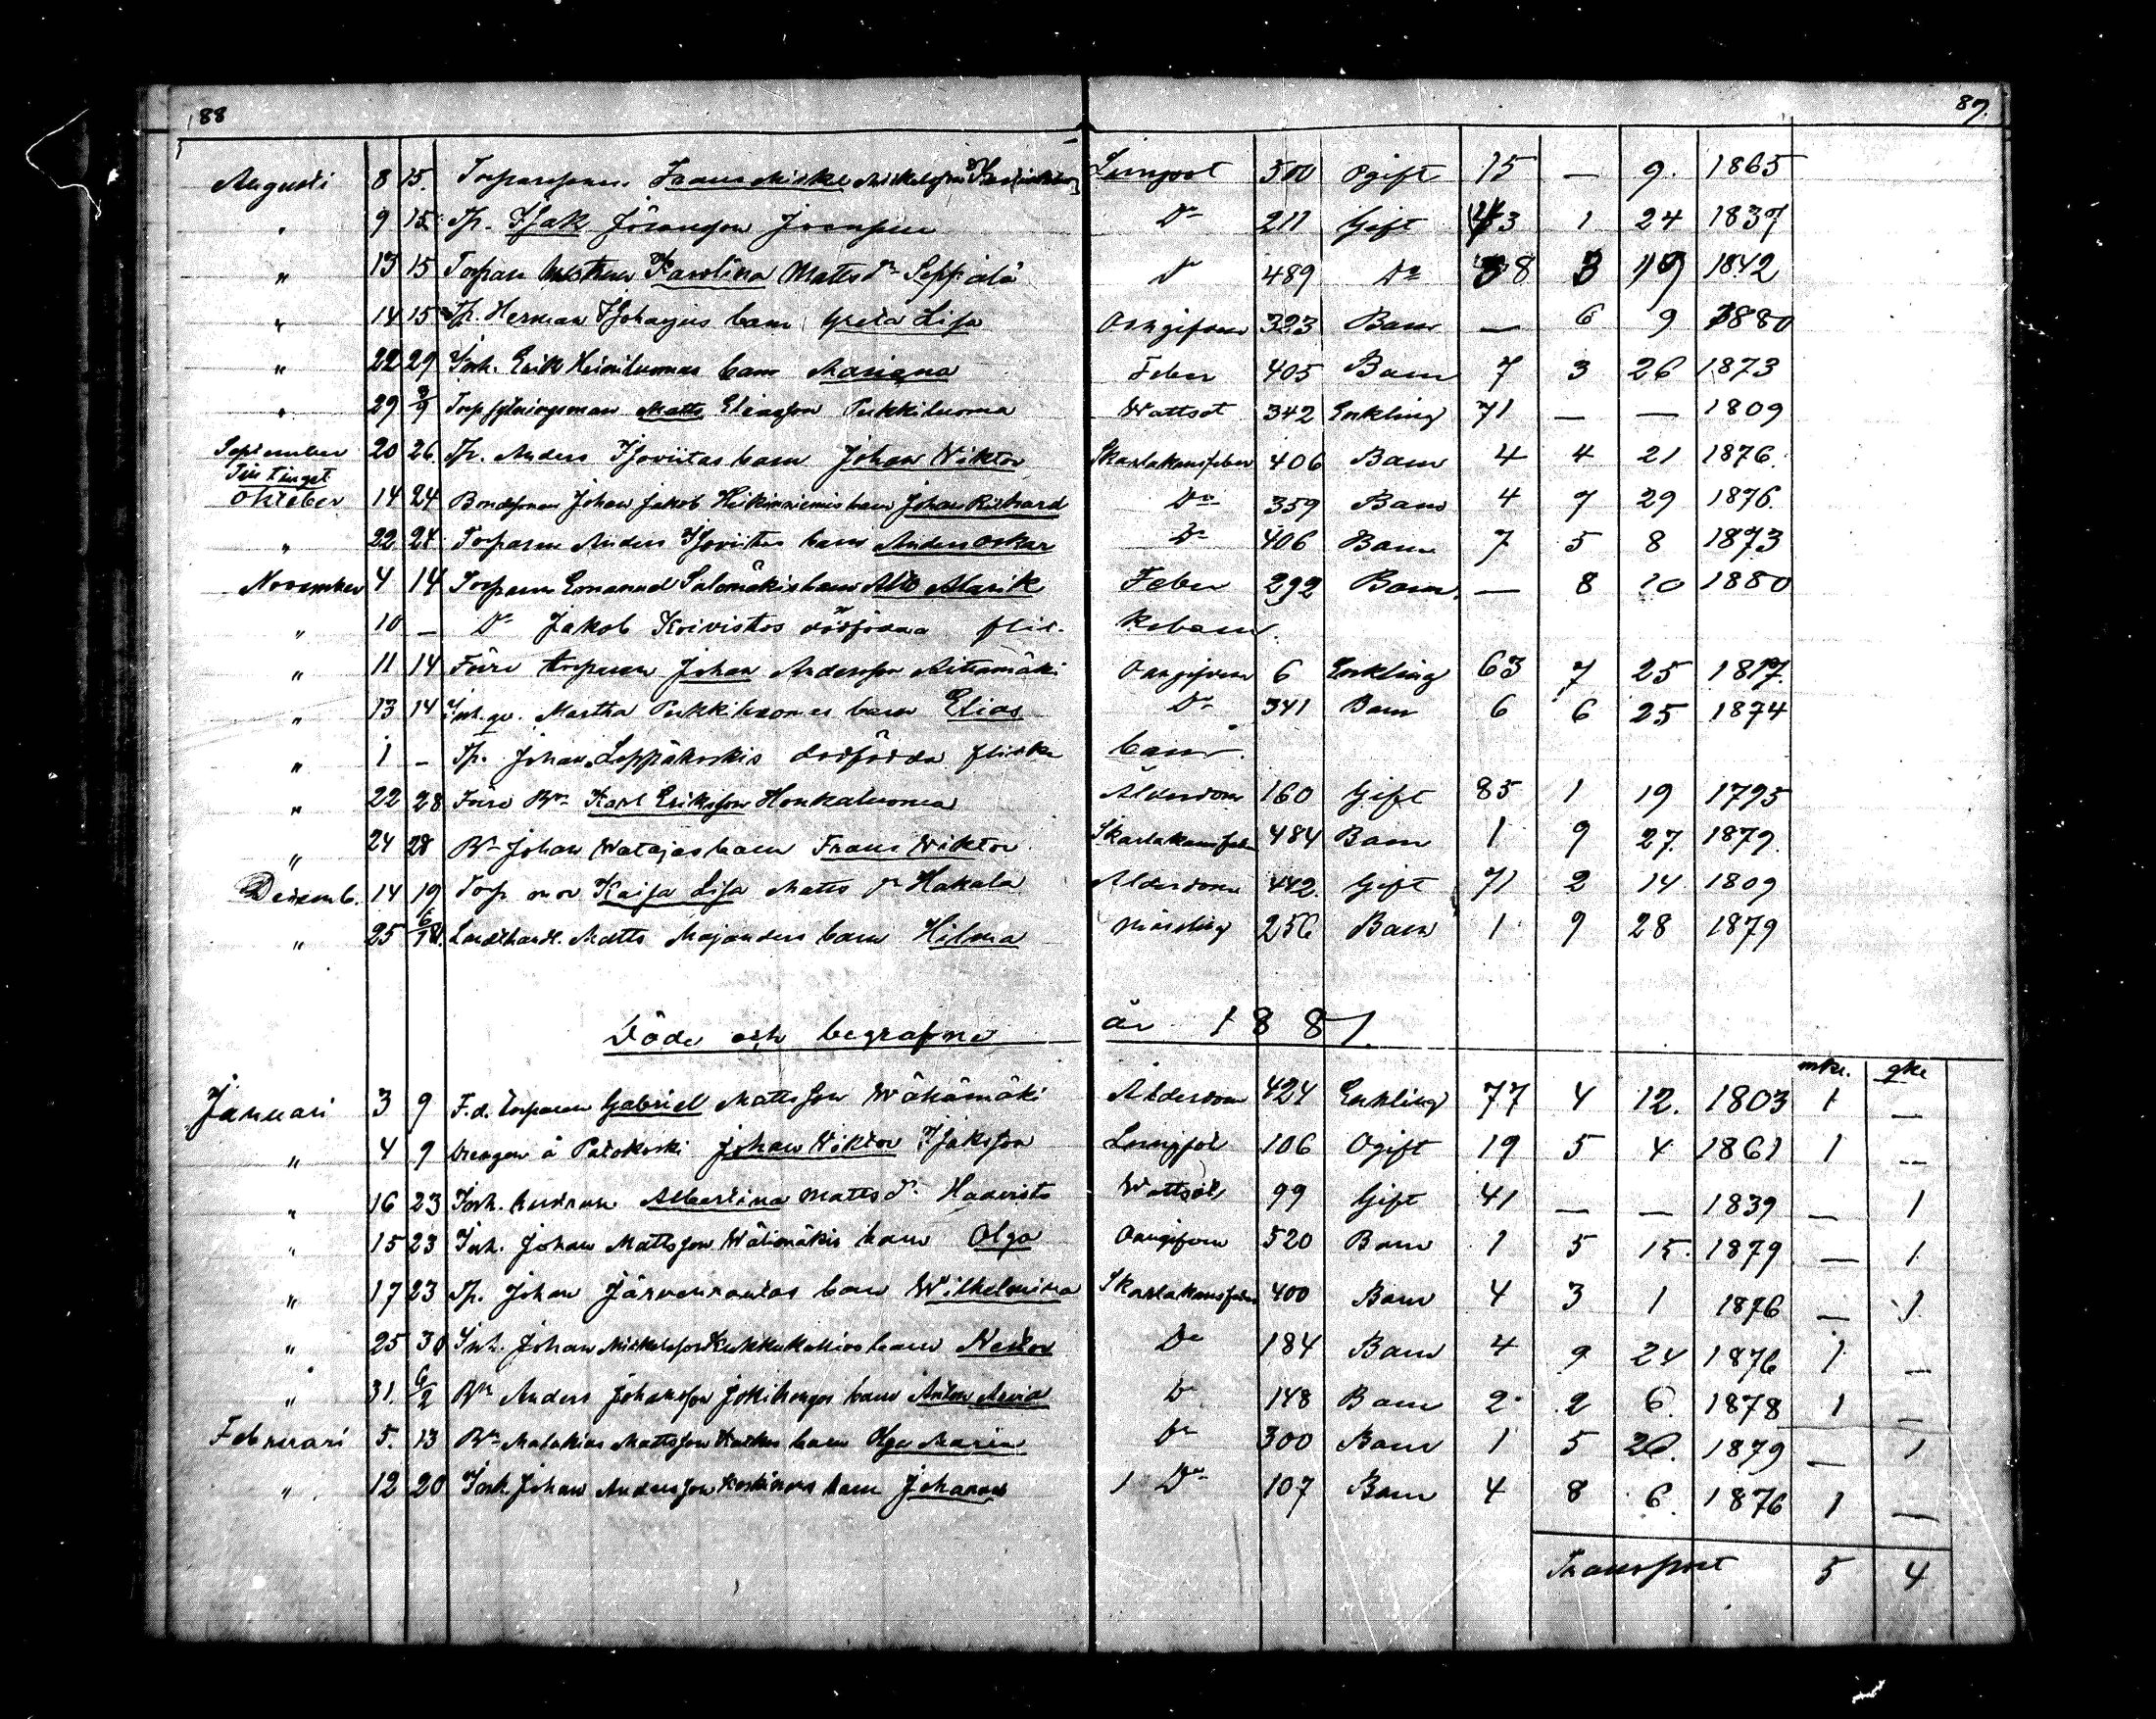 88 87.
Augusti 8 15. Torparesonen Frans Mickel Mickelsson Lungsot 500 Ogift 15 — 9. 1865
" 9 15. Tp. Isak Göransson D:o 211 Gift 43 1 24 1837
" 13 15 Torpare Karolina Matts dr Seppälä D:o 489 D:o 38 3 19 1842
" 14 15 Tp. Herman barn Greta Lisa Okänd 323 Barn — 6 9 1880
" 22 29 Inh. Erik Heiniluomas barn Mariana Feber 405 Barn 7 3 26 1873
" 29 3/9 Matts Eliasson Pukkiluoma Wattsot 342 Enkling 71 — — 1809
September 20 26. Tp. Anders Isoviitas barn Johan Wiktor Skarlakansfeber 406 Barn 4 4 21 1876.
Till tinget
Oktober 14 24 Bondsonen Johan Jakob Heikinniemis barn Johan Rikhard D:o 359 Barn 4 7 29 1876.
" 22 24 Torparen Anders Isoviitas barn Anders Oskar D:o 406 Barn 7 5 8 1873
November 4 14 Torparen Emanuel Salomäkis barn Alarik Feber 292 Barn. — 8 10 1880
" 10 — D:o Jakob Koivistos dödfödda flic- kebarn.
" 11 14 Förre torparen Johan Andersson Aittamäki 6 Enkling 63 7 25 1817.
" 13 14 Inh. qv. Martha Pukkiluomas barn Elias D:o 341 Barn 6 6 25 1874
" 1 — Tp. Johan Leppäkoskis dödfödda flicke barn.
" 22 28 Förre Bn Karl Eriksson Honkaluoma Ålderdom 160 Gift 85 1 19 1795
" 24 28 Bn Johan Watajas barn Frans Wiktor Skarlakansfeber 484 Barn 1 9 27. 1879.
Decemb. 14 19 Torp mor Kaisa Lisa Matts dr Hakala Ålderdom 442. Gift 71 2 14 1809
" 25 6/1 81. Landthandl. Matts Majanders barn Hilma Mässling 256 Barn 1 9 28 1879
Döde och begrafne år 1881.
mk. pke
Januari 3 9 F.d. torparen Gabriel Mattsson Wähämäki Ålderdom 424 Enkling 77 4 12. 1803 1 —
" 4 9 Drengen å Patokoski Johan Wiktor Isaksson Lungsot 106 Ogift 19 5 4 1861 1 —
" 16 23 Inh. hustrun Albertina Matts dr Haavisto Wattsot 99 Gift 41 — — 1839 — 1
" 15 23 Inh. Johan Mattsson Wälimäkis barn Olga 520 Barn 1 5 15. 1879 — 1
" 17 23 Tp. Johan Järvenrantas barn Wilhelmina Skarlakansfeber 400 Barn 4 3 1 1876 — 1
" 25 30 Inh. Johan Mickelsson Kukkukallios barn Nestor D:o 184 Barn 4 9 24 1876 1 —
" 31. 6/2 Bn Anders Johansson Jokihongos barn Anton D:o 148 Barn 2 2 6. 1878 1 —
Februari 5. 13 Bn Malakias Mattsson barn Olga Maria D:o 300 Barn 1 5 20. 1879 — 1
" 12 20 Inh. Johan Andersson Koskinens barn Johannes D:o 107 Barn 4 8 6. 1876 1 —
Transport 5 4